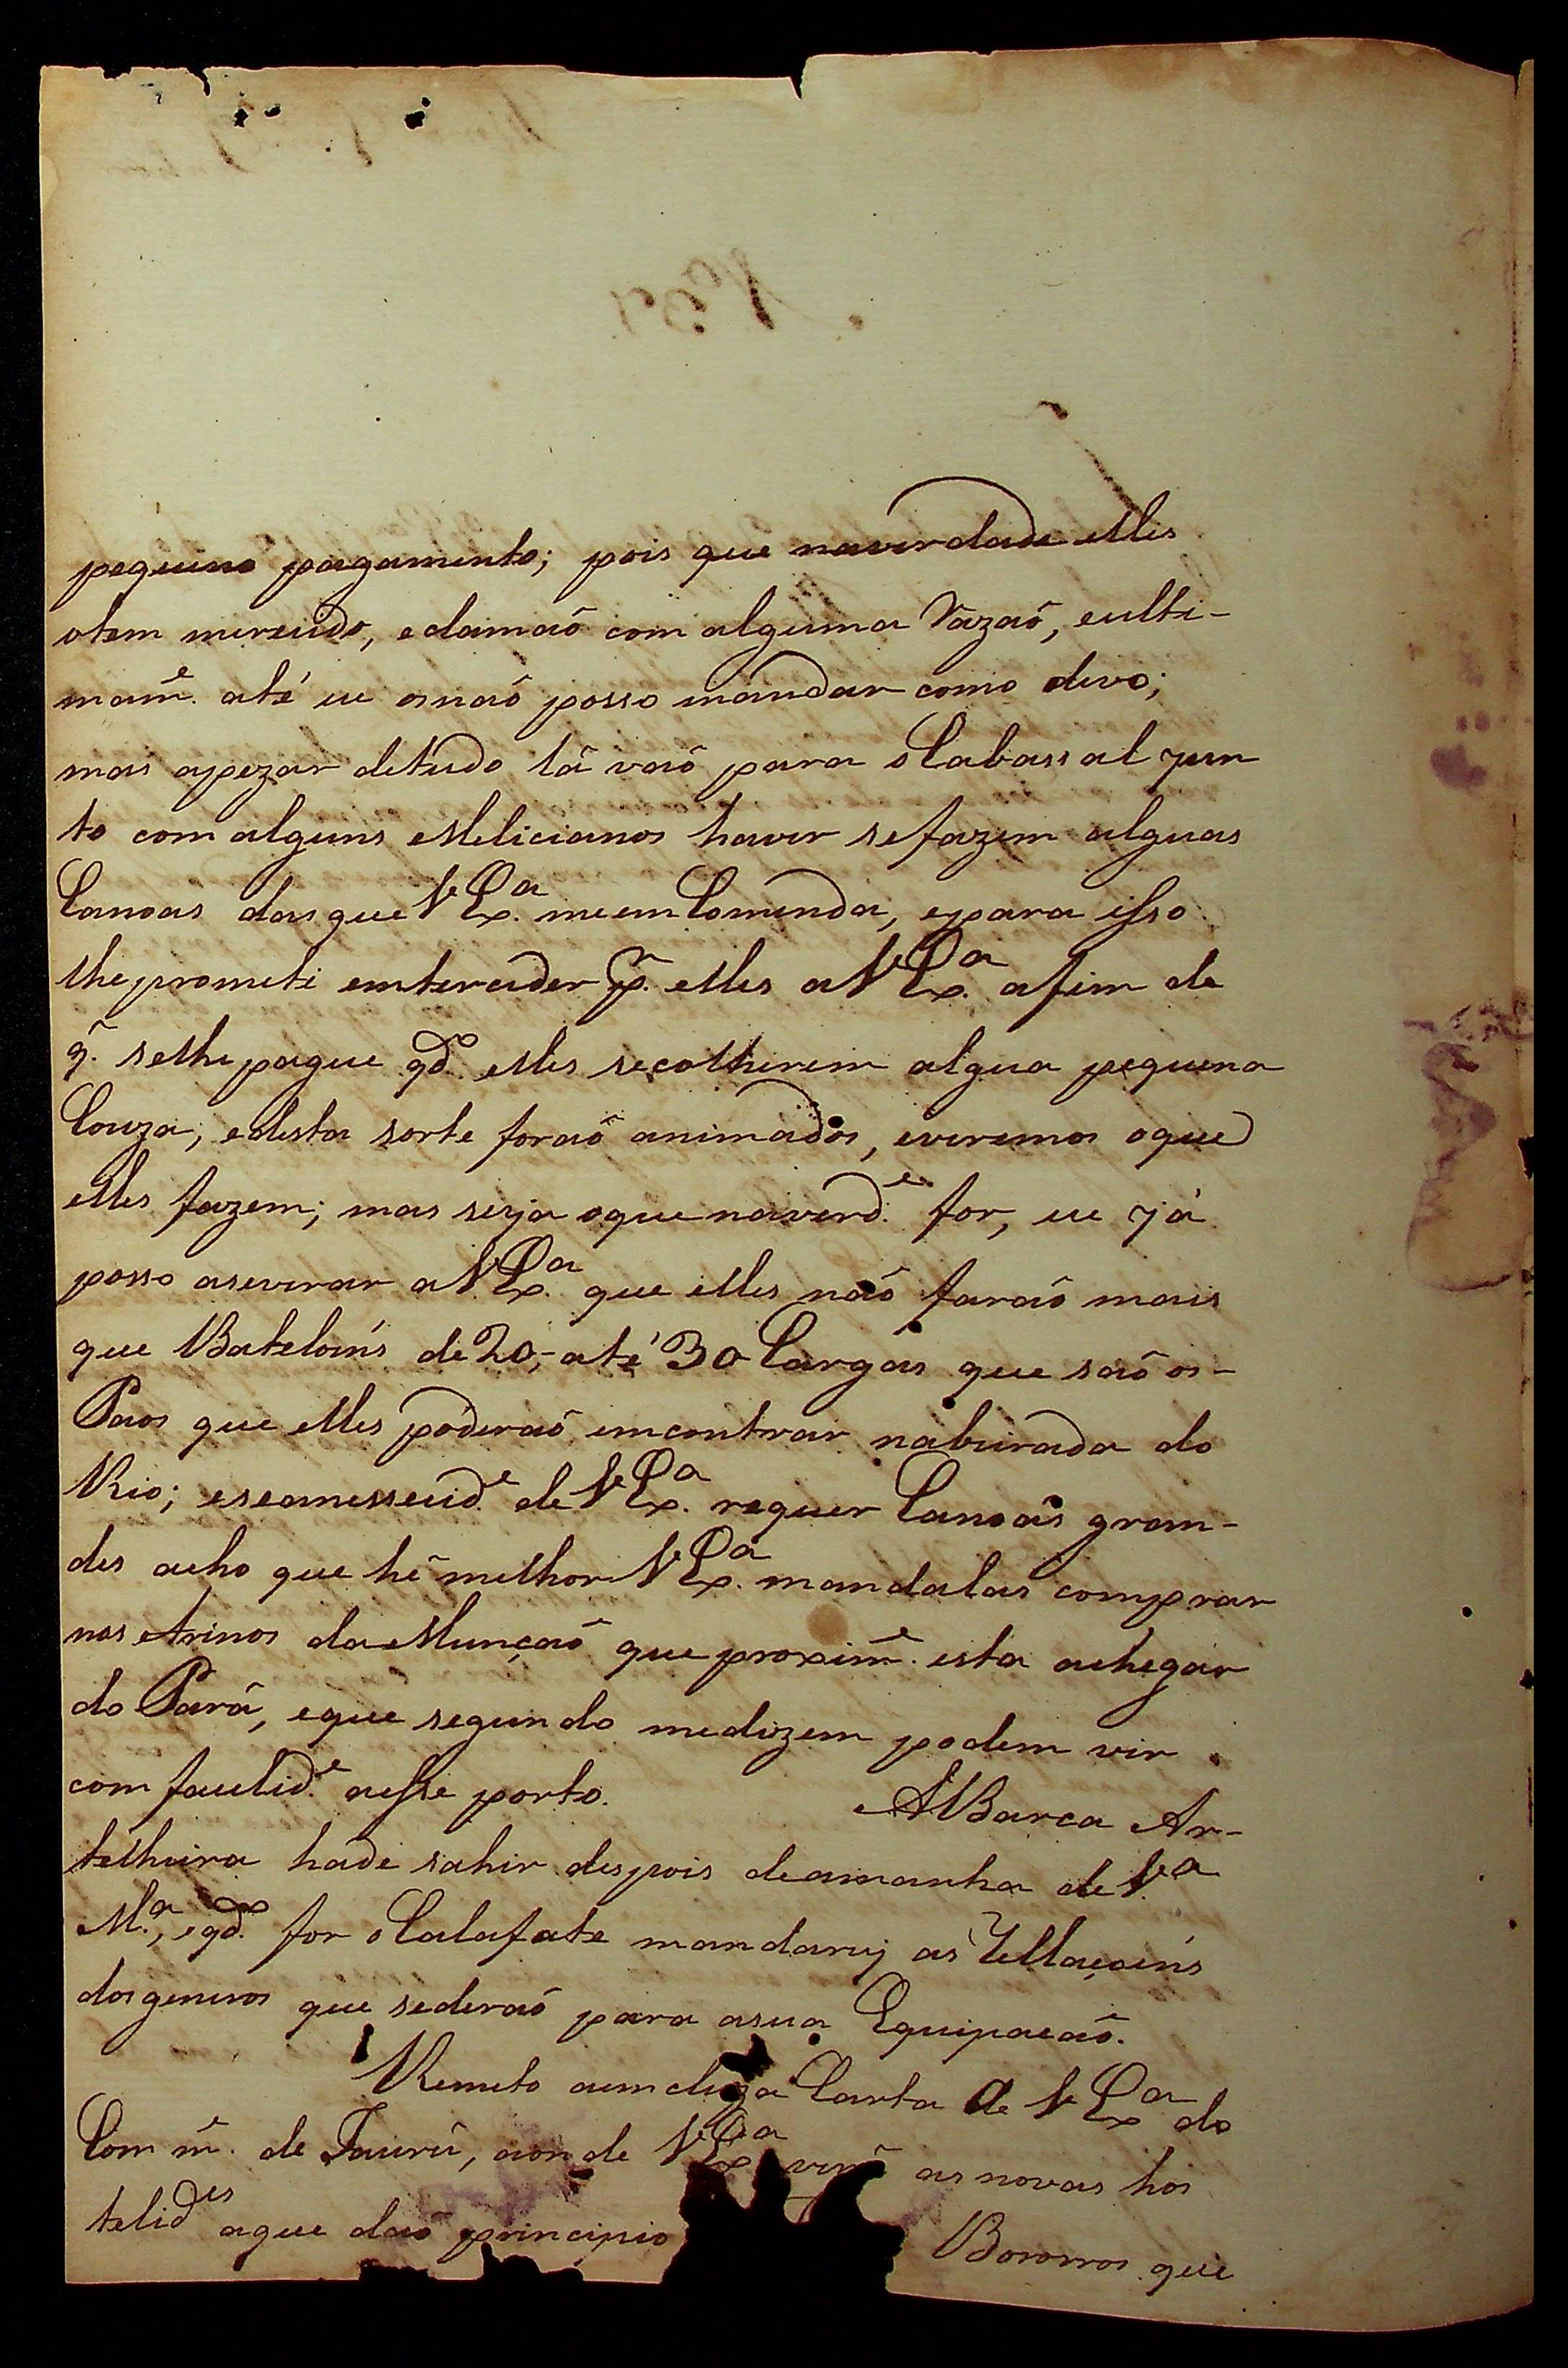 pequeno pagamento; pois que naverdade elles
otem merecido, eclamaõ com alguma Razaõ, eulti-
mam.e até eu osnaõ posso mandar como devo;
mas apezar detudo lá vaõ para oCabassal jun
to com alguns Melicianos haver sefazem alguas
Canoas dasque V Ex.a meemComenda, epara isso
lheprometi emterceder p.r elles aV Ex.a afim de
q. selhe pague qd.o elles secolherem algua pequena
Couza, edesta sorte foraõ animados, everemos oque
elles fazem; mas seja oquenaverd.e for, eu já
posso aseverar aV Ex.a que elles naõ faraõ mais
que Bateloins de 20,-até 30 Cargas que saõ os-
Paos que elles poderaõ emcontrar nabeirada do
Rio; eseanesseçid.e de V Ex.a requer Canoas gran-
des acho que hé melhor V Ex.a mandalas comprar
nos Arinos daMunçaõ que proxim.e esta achegar
do Pará, eque segundo medizem podem vir
com facelid.e aesse porto. ABarca Ar-
telheira hade sahir despois deamanha de V.a
M.a, eqd.o for oCalafate mandarej as Rellaçoens
dosgeneros que sederaõ para asua Equipaçaõ.
Remeto aemcluza Carta a V Ex.a do
Com m.e de Jaurú, aonde V Ex.a verá as novas hos
telid.es aque daõ principio Bororros que